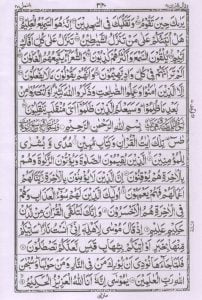 ٣٤٠
يَرٰىكَ حِيْنَ تَقُوْمُ ۙ وَتَقَلُّبَكَ فِي السّٰجِدِيْنَ اِنَّهٗ هُوَ السَّمِيْعُ الْعَلِيْمُ
هَلْ اُنَبِّئُكُمْ عَلٰى مَنْ تَنَزَّلُ الشَّيٰطِيْنُ تَنَزَّلُ عَلٰى كُلِّ اَفَّاكٍ
اَثِيْمٍ يُّلْقُوْنَ السَّمْعَ وَاَكْثَرُهُمْ كٰذِبُوْنَ وَالشُّعَرَآءُ يَتَّبِعُهُمُ
الْغَاوٗنَ اَلَمْ تَرَ اَنَّهُمْ فِيْ كُلِّ وَادٍ يَّهِيْمُوْنَ وَاَنَّهُمْ يَقُوْلُوْنَ
مَا لَا يَفْعَلُوْنَ اِلَّا الَّذِيْنَ اٰمَنُوْا وَعَمِلُوا الصّٰلِحٰتِ وَذَكَرُوا اللّٰهَ كَثِيْرًا وَّانْتَصَرُوْا مِنْ
بَعْدِ مَا ظُلِمُوْا وَسَيَعْلَمُ الَّذِيْنَ ظَلَمُوْٓا اَيَّ مُنْقَلَبٍ يَّنْقَلِبُوْنَ
بِسْمِ اللّٰهِ الرَّحْمٰنِ الرَّحِيْمِ
طٰسٓ تِلْكَ اٰيٰتُ الْقُرْاٰنِ وَكِتَابٍ مُّبِيْنٍ هُدًى وَّبُشْرٰى
لِلْمُؤْمِنِيْنَ الَّذِيْنَ يُقِيْمُوْنَ الصَّلٰوةَ وَيُؤْتُوْنَ الزَّكٰوةَ وَهُمْ
بِالْاٰخِرَةِ هُمْ يُوْقِنُوْنَ اِنَّ الَّذِيْنَ لَا يُؤْمِنُوْنَ بِالْاٰخِرَةِ زَيَّنَّا لَهُمْ
اَعْمَالَهُمْ فَهُمْ يَعْمَهُوْنَ اُولٰٓئِكَ الَّذِيْنَ لَهُمْ سُوْٓءُ الْعَذَابِ وَهُمْ
فِي الْاٰخِرَةِ هُمُ الْاَخْسَرُوْنَ وَاِنَّكَ لَتُلَقَّى الْقُرْاٰنَ مِنْ لَّدُنْ
حَكِيْمٍ عَلِيْمٍ اِذْ قَالَ مُوْسٰى لِاَهْلِهٖٓ اِنِّيْٓ اٰنَسْتُ نَارًا سَاٰتِيْكُمْ
مِّنْهَا بِخَبَرٍ اَوْ اٰتِيْكُمْ بِشِهَابٍ قَبَسٍ لَّعَلَّكُمْ تَصْطَلُوْنَ
فَلَمَّا جَآءَهَا نُوْدِيَ اَنْۢ بُوْرِكَ مَنْ فِي النَّارِ وَمَنْ حَوْلَهَا وَسُبْحٰنَ
اللّٰهِ رَبِّ الْعٰلَمِيْنَ يٰمُوْسٰٓى اِنَّهٗٓ اَنَا اللّٰهُ الْعَزِيْزُ الْحَكِيْمُ